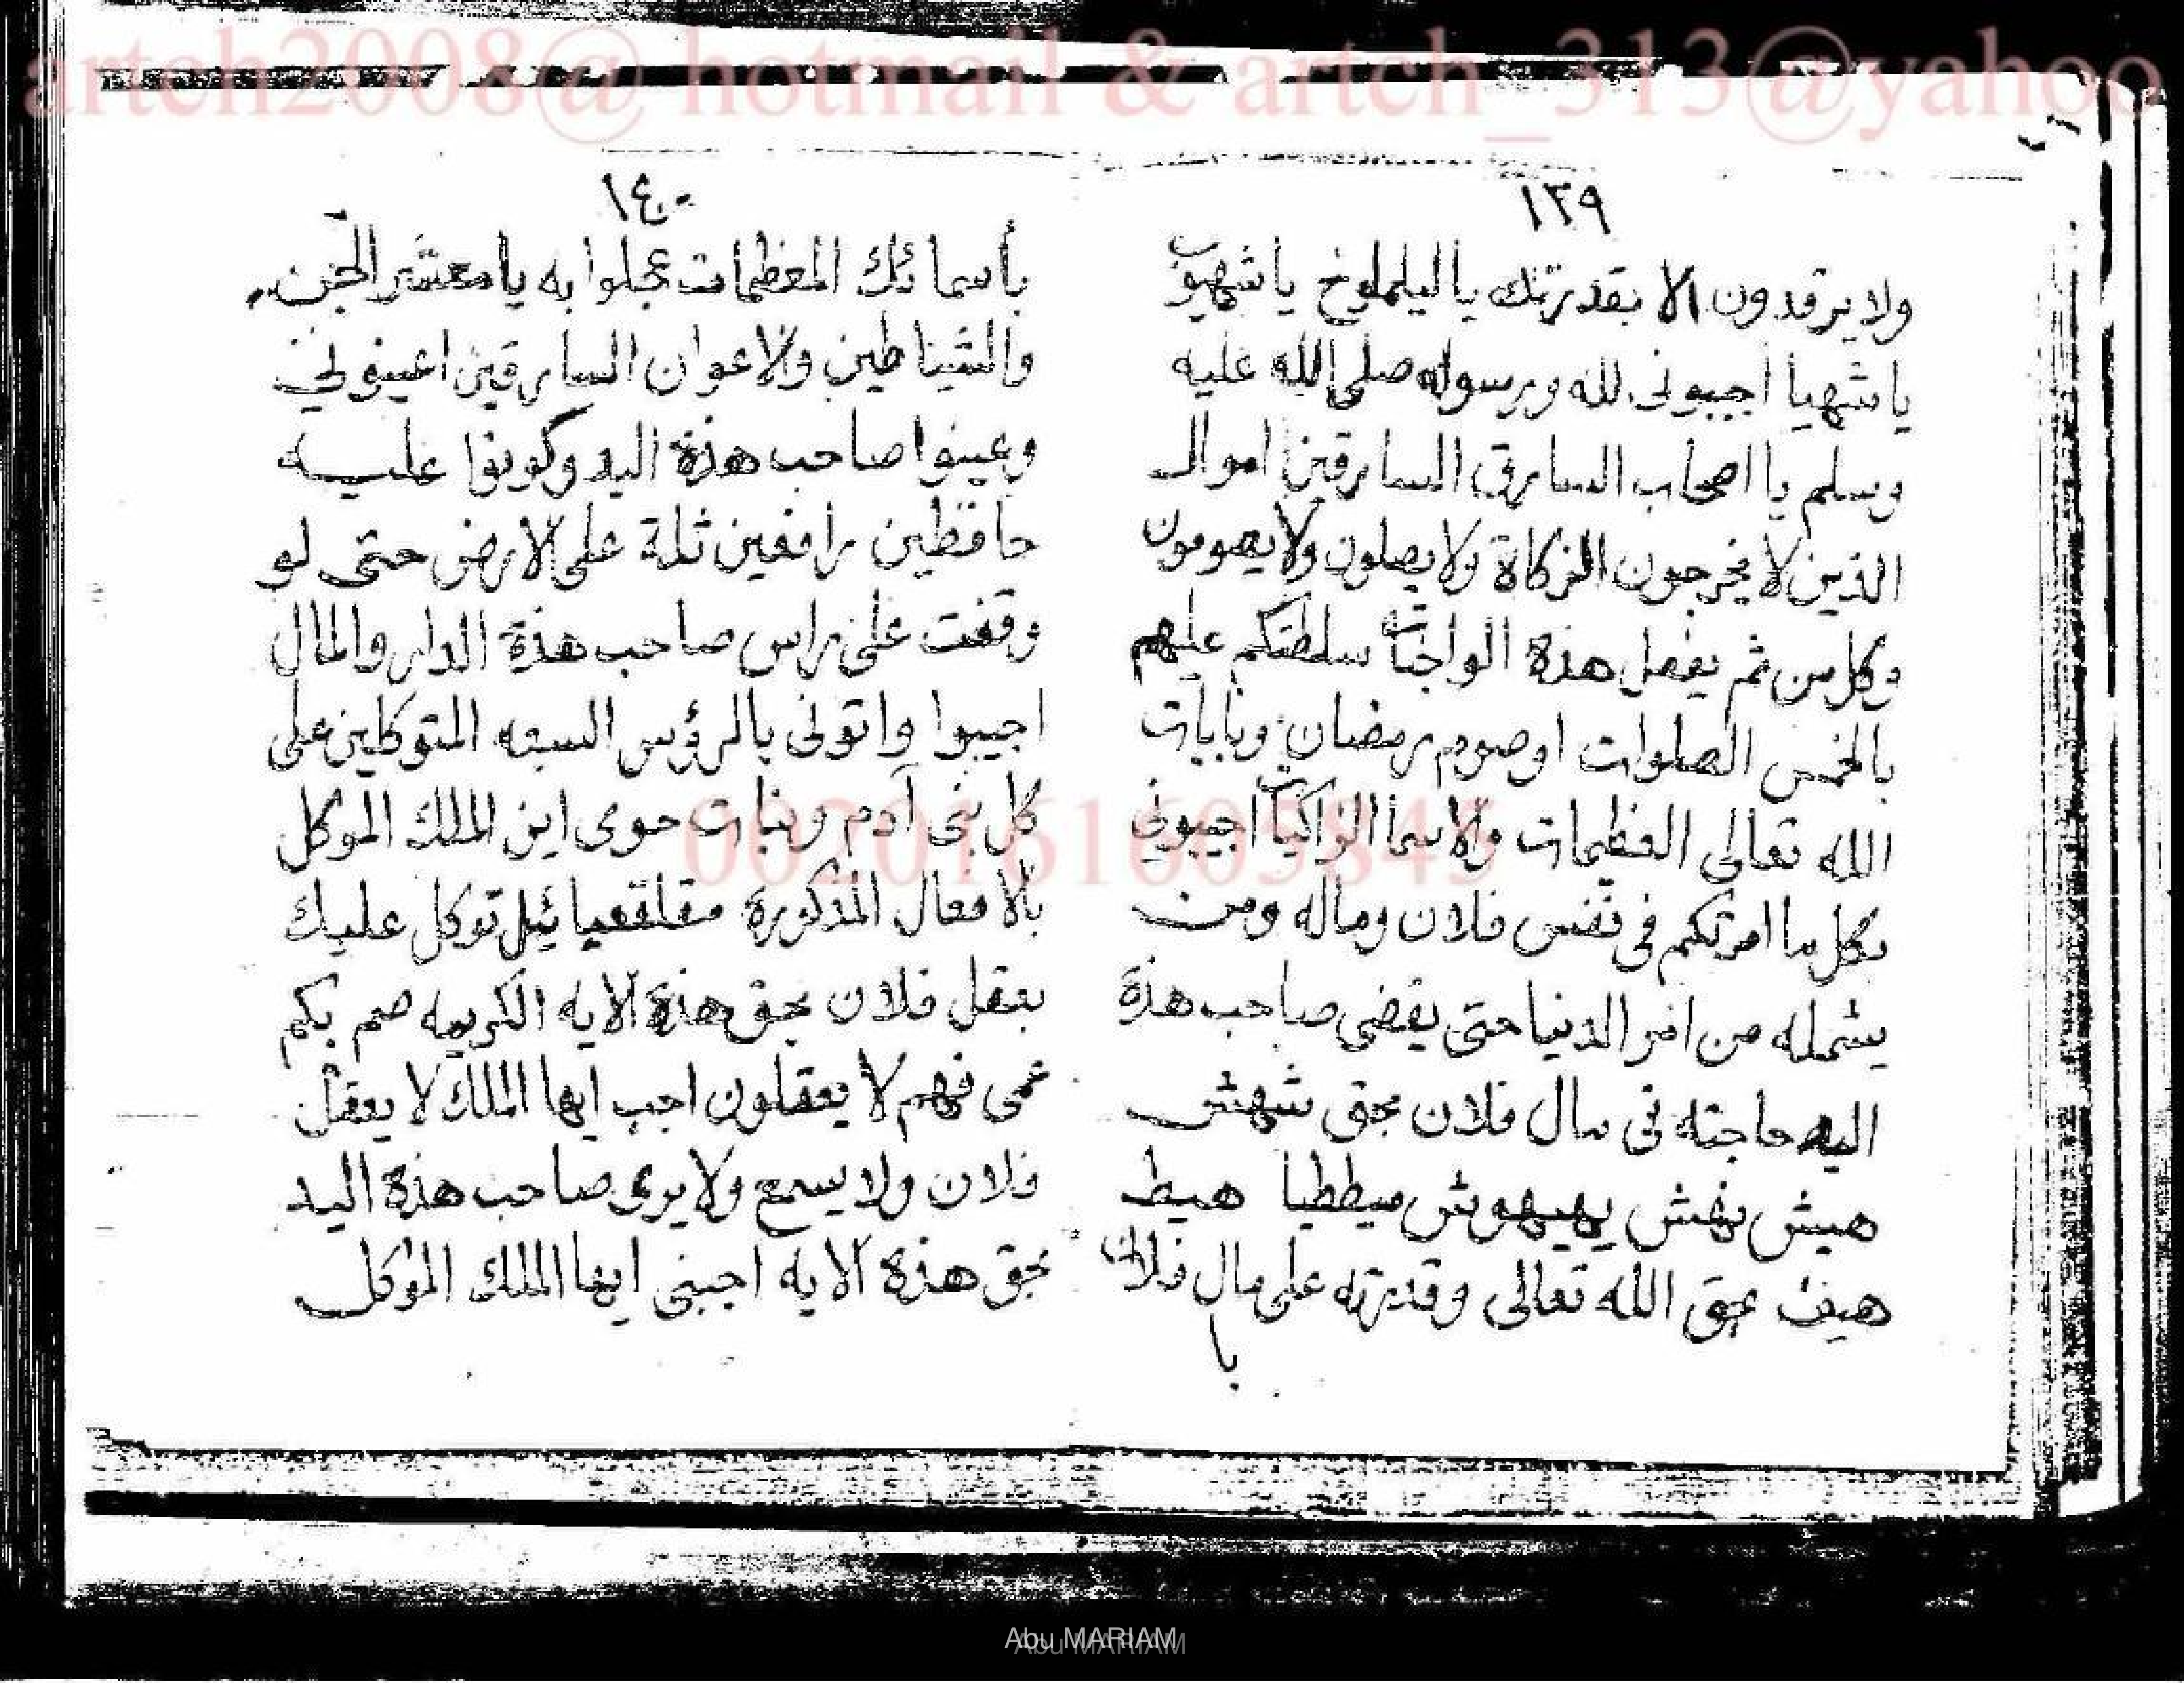 artch2008@ hotmail & artch_313@yahoo
١٣٩
ولا يرقدون الا بقدرتك يا ليلملوخ يا شهبوب
يا شهيا اجيبونى لله ورسوله صلى الله عليه
وسلم يا اصحاب السارق السارقين اموال
الذين لا يخرجون الزكاة ولا يصلون ولا يصومون
وكل من ثم يفعل هذه الواجبات سلطتكم عليهم
بالخمس الصلوات اوصوم رمضان وبايات
الله تعالى العظيمات والاسما الزاكيات اجيبونى
بكل ما امرتكم فى نفس فلان وماله ومن
يشمله من امر الدنيا حتى يقضى صاحب هذة
اليد حاجته فى مال فلان بحق شهش
هيش نهش يهيهوش ميططيا هيط
هيف بحق الله تعالى وقدرته على مال فلان
با
١٤٠
بأسمائك المعظمات عجلوا به يا معشر الجن
والشياطين والاعوان السارقين اعينونى
وعينوا صاحب هذة اليد وكونوا عليه
حافظين رافعين ثلة على الارض حتى لو
وقفت على راس صاحب هذة الدار والمال
اجيبوا واتونى بالرؤس السبعه المتوكلين على
كل بنى آدم وبنات حوى اين الملك الموكل
بالافعال المذكورة مقلقفيائيل توكل عليك
بعقل فلان بحق هذة الايه الكريمه صم بكم
عمى فهم لا يعقلون اجب ايها الملك لا يعقل
فلان ولا يسمع ولا يرى صاحب هذة اليد
بحق هذة الايه اجبنى ايها الملك الموكل
0020161605845
Abu MARIAM